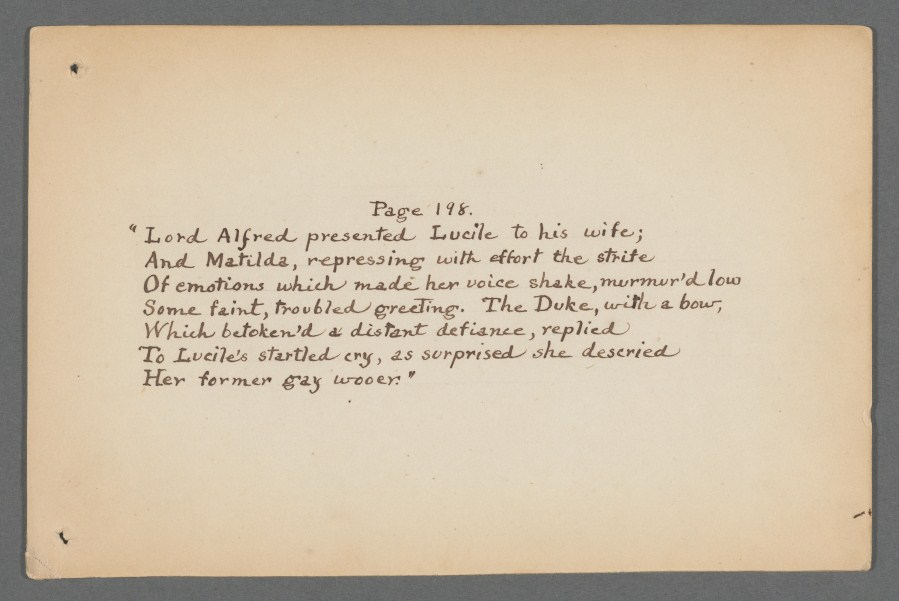 Page 198.
"Lord Alfred presented Lucile to his wife;
And Matilda, repressing with effort the strife
Of emotions which made her voice shake, murmur'd low
Some faint, troubled greeting. The Duke, with a bow,
Which betoken'd a distant defiance, replied
To Lucile's startled cry, as surprised she descried
Her former gay wooer."